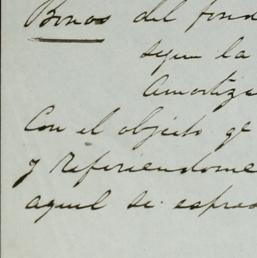 Bonos del fond
segun la
Amortiza
Con el objeto ge
y refiriendome
aquel se espres